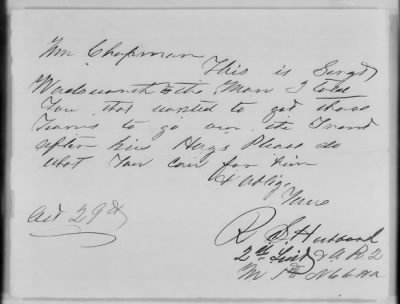 Wm Chapman
This is Sergt
Wadsworth the Man I told
You that wanted to get those
Teams to go over the
after his Hogs Please do
what You can for him
& oblige
Yours
Oct 29th
R. S. Hubbard
2d Lieut & A. R. 2
M 1st